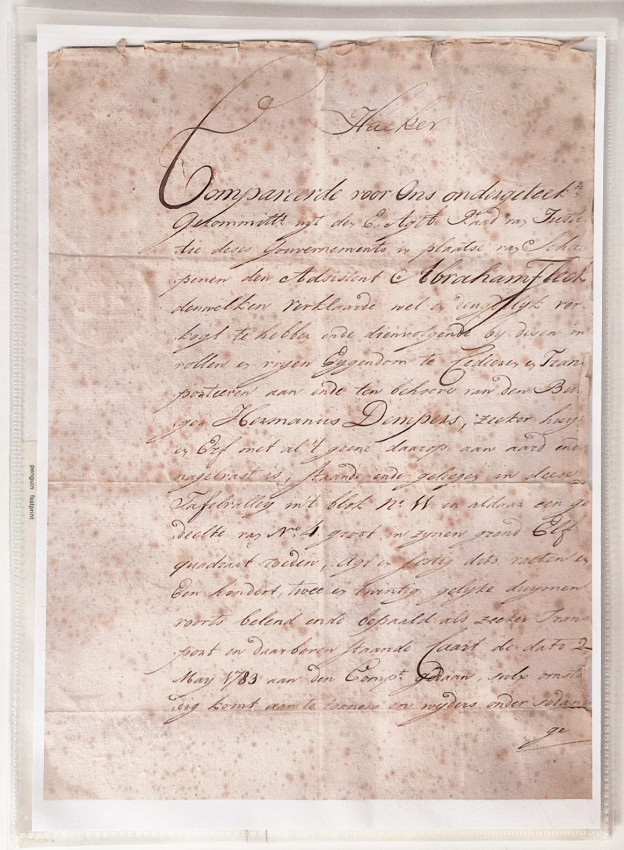 Hacker
Compareerde voor Ons ondergeteek:
Gecommitt:s uyt den E. Agtb: Raad van Justi
tie deses Gouvernements in plaatse van Sche
penen den Adsistent Abraham Fleck
denwelken verklaarde wel en deugdelyk ver
kogt te hebben ende dienvolgende by desen in
vollen en vryen Eygendom te Cedeeren en Tran
porteeren aan ende ten behoeve van den Bur
ger Hermanus Dempers, zeeker huys
en Erf met al 't geene daarop aan aard ende
nagelvast is, staande ende gelegen in deese
Tafelvalley in't blok N:o W en aldaar een ge
deelte van N:ro 4 groot in zynen grond Elf
quadraat roeden, Agt en festig dito voeten en
Een hondert, twee en twintig gelyke duymen
voorts belend ende bepaald als zeeker Trans
port en daarboven staande Caart de dato 2
May 1783 aan den Comp:t gedaan, sulx omste
dig komt aan te toonen en wyders onder sodani
ge
penguin fastprint